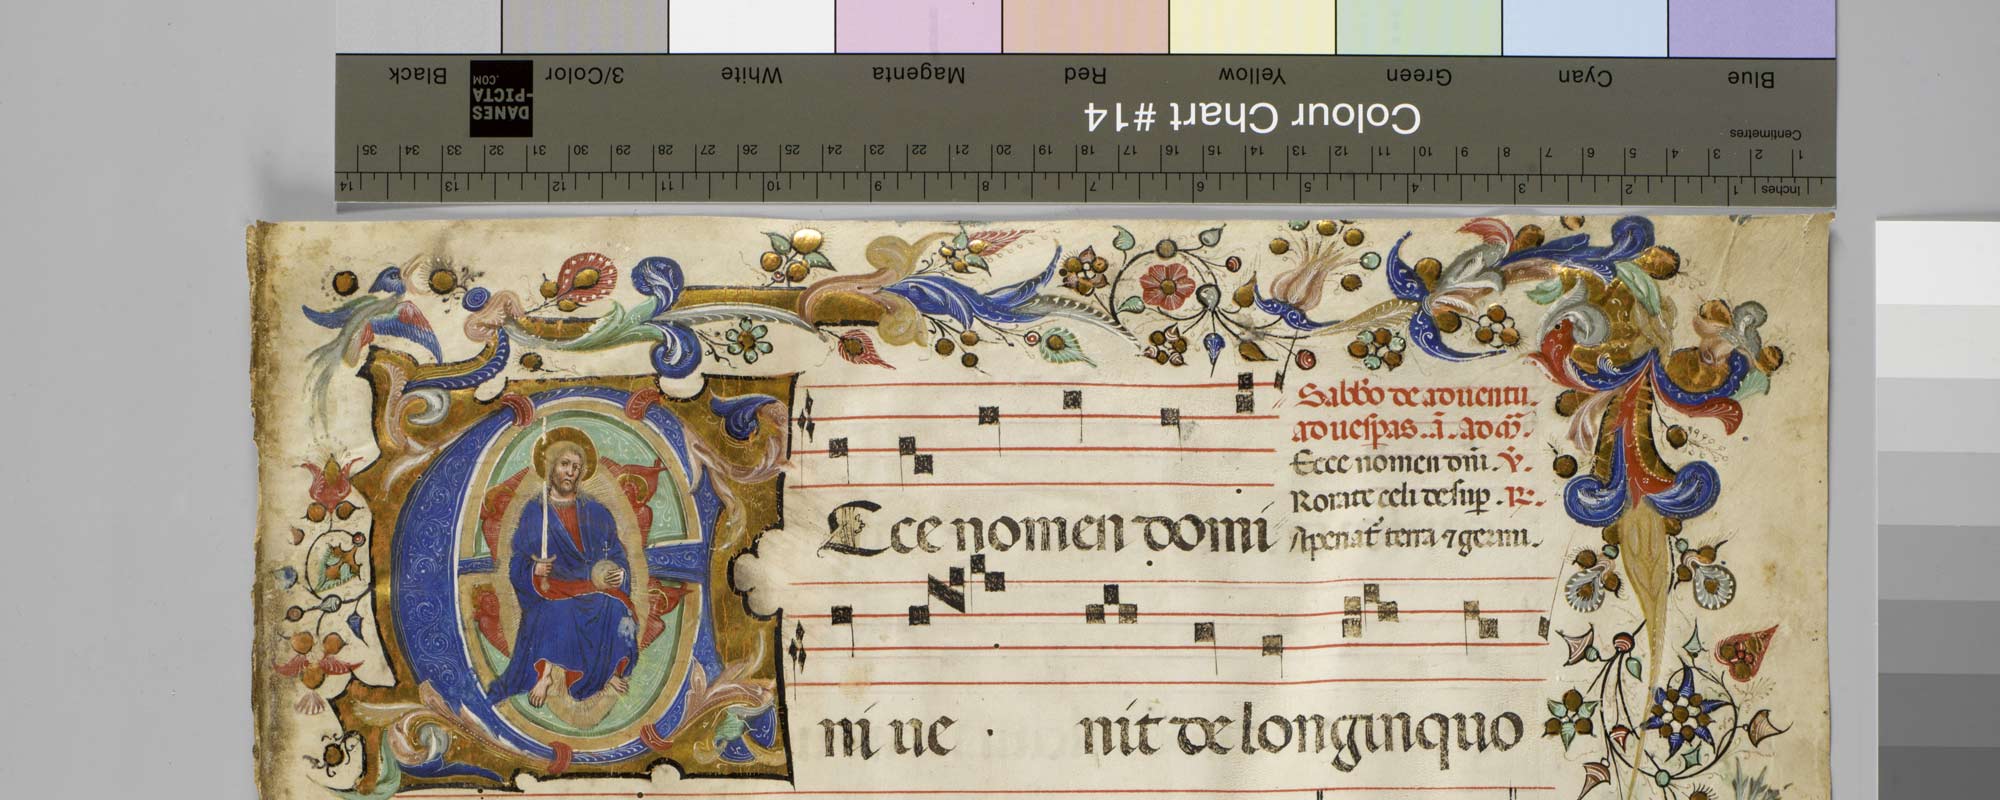 Black 3/Color White Magenta Red Yellow Green Cyan Blue
DANES
-PICTA
.COM
Colour Chart #14
Centimetres
1 2 3 4 5 6 7 8 9 10 11 12 13 14 15 16 17 18 19 20 21 22 23 24 25 26 27 28 29 30 31 32 33 34 35
Inches 1 2 3 4 5 6 7 8 9 10 11 12 13 14
Sabbo de aduentu
ad uespas. a. ad m.
Ecce nomen dni. V.
Rorate celi desup. R.
Aperiat terra ⁊ germi.
Ecce nomen domi
ni ue nit de longinquo